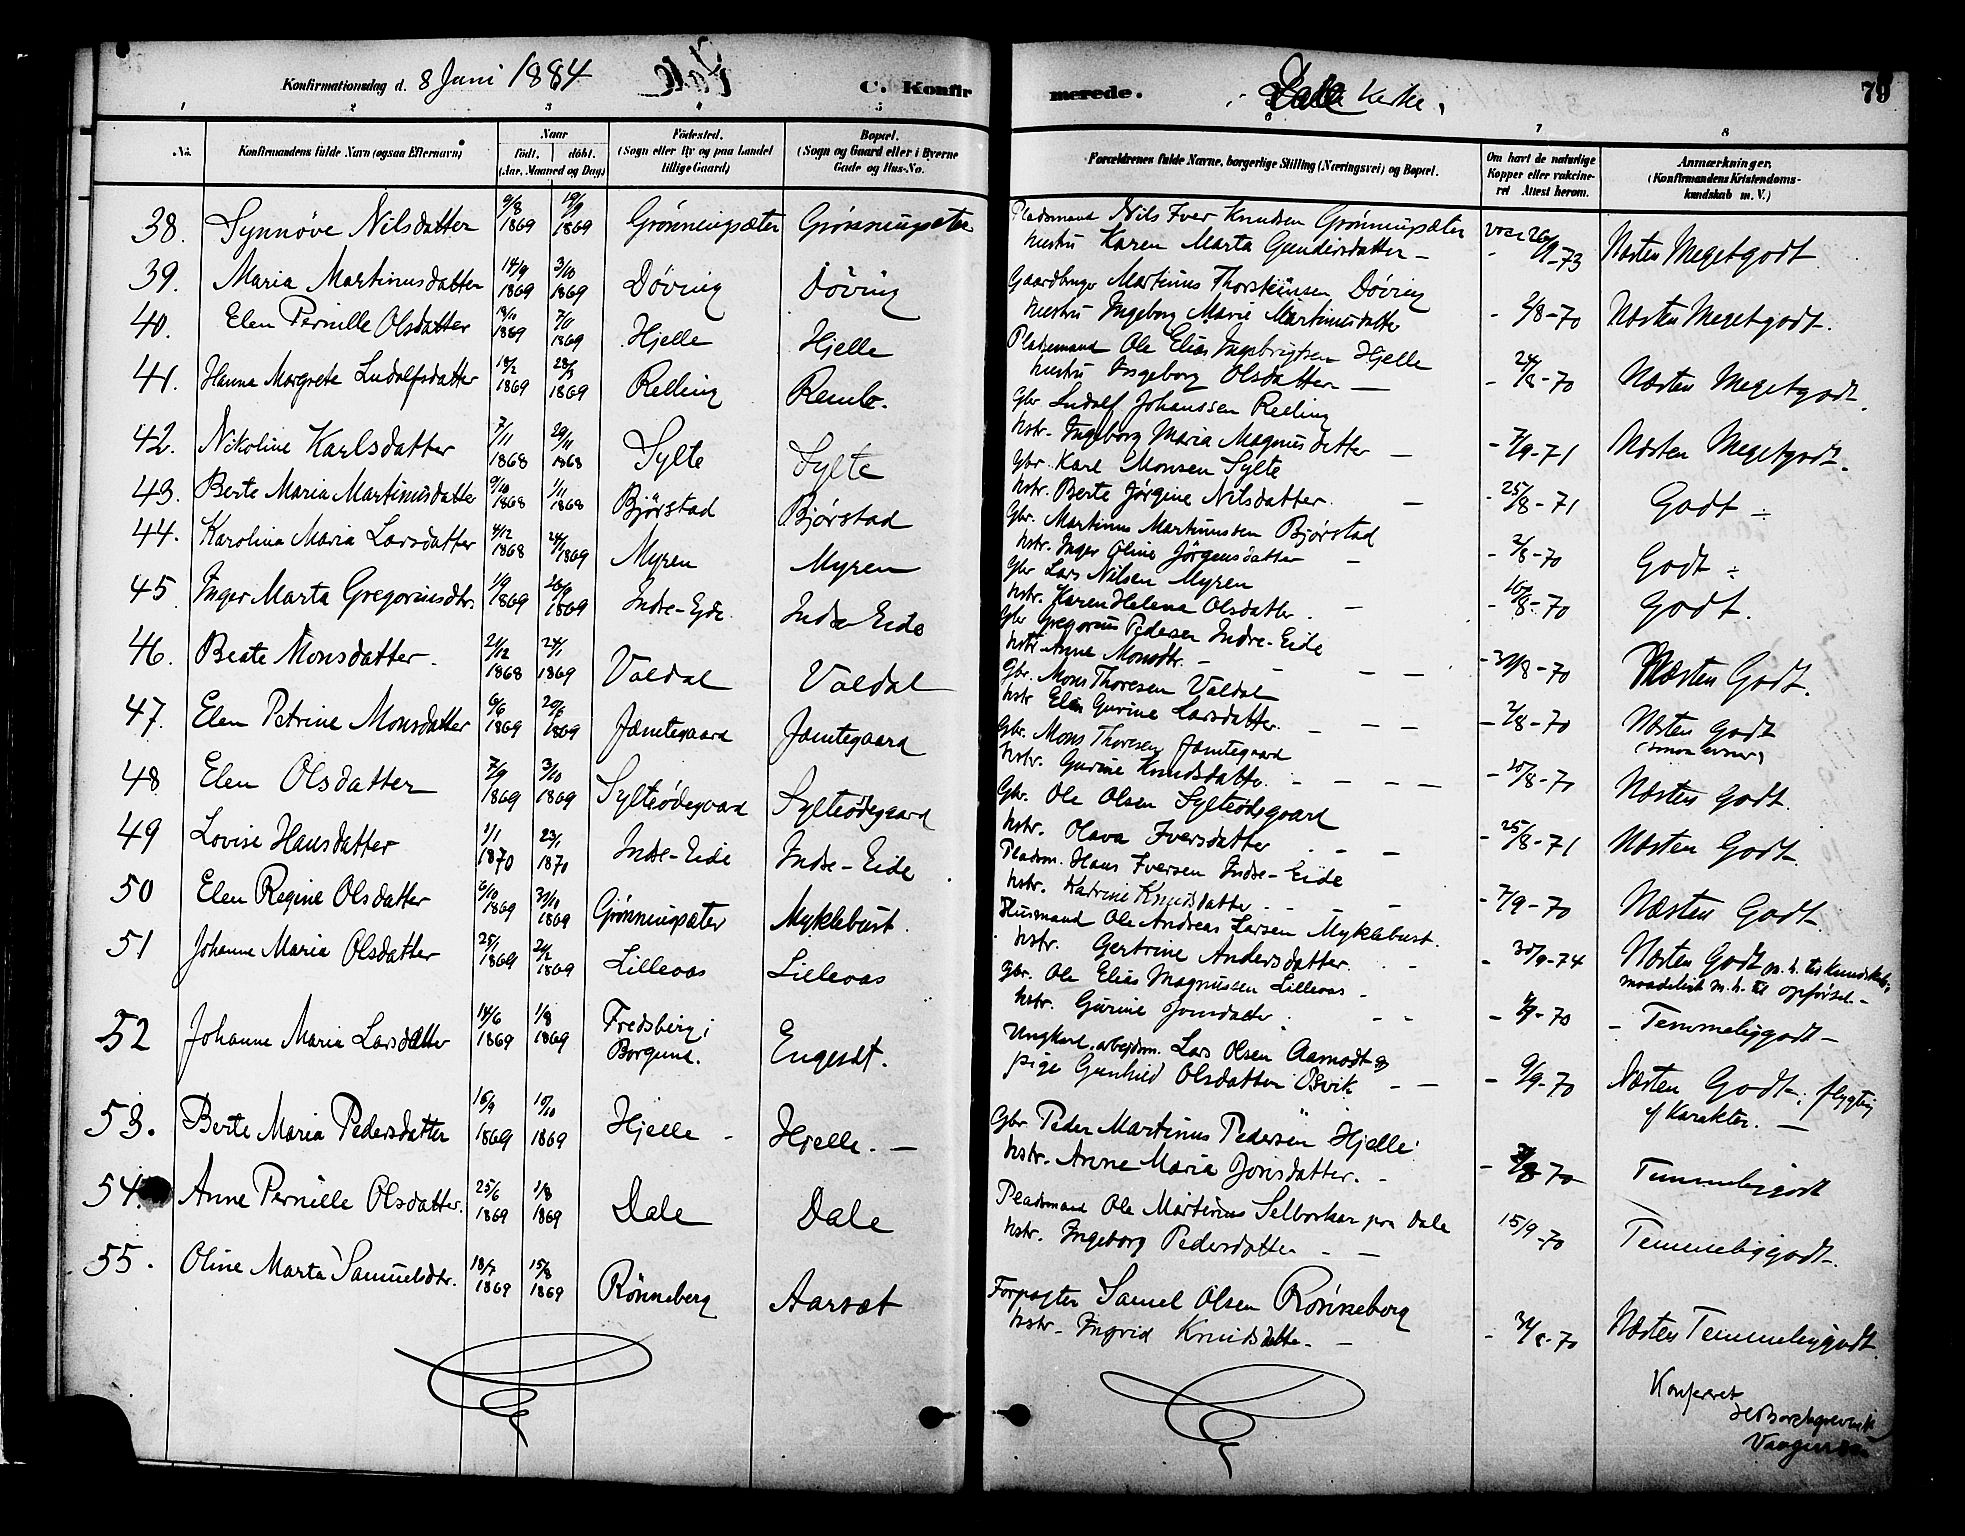 Konfirmationsdag d. 8 Juni 1884
C. Konfir
merede.
i Dale Kirke.
79
1 2 3 4 5 6 7 8
No. Konfirmandens fulde Navn (ogsaa Efternavn) Naar födt. döbt. (Aar, Maaned og Dag) Födested. (Sogn eller By og paa Landet tillige Gaard) Bopæl. (Sogn og Gaard eller i Byerne Gade og Hus-No.
Forældrenes fulde Navne, borgerlige Stilling (Næringsvei) og Bopæl. Om havt de naturlige Kopper eller vakcineret Attest herom. Anmærkninger. (Konfirmandens Kristendomskundskab m. V.)
38. Synnöve Nilsdatter 9/8 1869 19/9 1869 Grönningsæter Grönningsæter Pladsmand Nils Iver Knudsen Grönningsæter
hustru Karen Marta Gundersdatter – vac 26/9-73 Næsten Megetgodt
39. Maria Martinusdatter 14/9 1869 3/10 1869 Döving Döving Gaardbruger Martinus Thorsteinsen Döving
hustru Ingeborg Marie Martinusdatter - 2/8-70 Næsten Megetgodt.
40. Elen Pernille Olsdatter 1869 7/11 1869 Hjelle Hjelle Pladsmand Ole Elias Ingebrigtsen Hjelle
hustru Ingeborg Olsdatter – - 24/8-70 Næsten Megetgodt.
41. Hanna Margrete Ludolfsdatter 18/2 1869 28/3 1869 Relling Gbr Ludolf Johanssen Relling
hstr. Ingeborg Maria Magnusdatter – - 7/9-71 Næsten Megetgodt.
42. Nikoline Karlsdatter 7/11 1868 29/11 1868 Sylte Sylte Gbr. Karl Monsen Sylte
hstr. Berte Jörgine Nilsdatter. – - 25/8-71 Godt
43. Berte Maria Martinusdatter 9/10 1868 1/11 1868 Björstad Björstad Gbr. Martinus Martinussen Björstad
hstr. Inger Oline Jörgensdatter – - 2/8-70 Godt
44. Karolina Maria Larsdatter 4/12 1868 1869 Myren Myren Gbr Lars Nilsen Myren
hstr. Karen Helena Olsdatter. – - 16/8-70 Godt.
45 Inger Marta Gregoriusdtr. 1/9 1869 26/9 1869 Indre-Eide Indre Eide Gbr Gregorius Pedersen Indre-Eide
hstr Anne Monsdtr. – - 30/8-70 Næsten Godt.
46. Beate Monsdatter. 2/12 1868 24/1 1869 Valdal Valdal Gbr. Mons Thoresen Valdal
hstr Elen Gurine Larsdatter. – - 2/8-70 Næsten Godt
47. Elen Petrine Monsdatter 6/6 1869 1869 Jamtegaard Jamtegaard Gbr. Mons Thoresen Jamtegaard
hstr. Gurine Knudsdatter. – - 8-70 Næsten Godt.
48 Elen Olsdatter 7/9 1869 3/10 1869 Sylteödegaard Sylteödegaard Gbr. Ole Olsen Sylteödegaard
hstr. Olava Iversdatter – - 25/8-71 Næsten Godt.
49 Lovise Hansdatter 1/1 1870 23/1 1870 Indre-Eide Indre-Eide Pladsm. Hans Iversen Indre-Eide
hstr. Katrine Knudsdatter – - 7/9-70 Næsten Godt.
50 Elen Regine Olsdatter 1869 1869 Grönningsæter Myklebust Husmand Ole Andreas Larsen Myklebust.
hstr. Gertrine Andersdatter. - 30/9-74 Næsten Godt m. h. t. Kundskab,
maadelig m. h. til opförsel. –
51 Johanne Maria Olsdatter 25/1 1869 1869 Lilleaas Lilleaas Gbr. Ole Elias Magnussen Lilleaas
hstr. Gurine Jonsdatter. - -70 – Temmeliggodt –
52 Johanne Maria Larsdatter 14/6 1869 1/8 1869 Fredsberg i Borgund. Engeset. Ungkarl, arbejdsm. Lars Olsen Aamodt og
pige Gunhild Olsdatter Osvik – - 9/9-70 Næsten Godt; flygtig
af Karakter. –
53. Berte Maria Pedersdatter 16/9 1869 10/10 1869 Hjelle – Hjelle. – Gbr Peder Martinus Pedersen Hjelle
hstr. Anne Maria Jonsdatter. - 8-70 Temmeliggodt
54. Anne Pernille Olsdatter. 25/6 1869 1/8 1869 Dale Dale Pladsmand Ole Martinus Selboskar paa Dale
hstr. Ingeborg Pedersdatter – 15/9-70 Temmeliggodt.
55. Oline Marta Samuelsdtr. 18/7 1869 15/8 1869 Rönneberg Aarsæt Forpagter Samuel Olsen Rönneberg
hstr. Ingrid Knudsdatter. – - 8-70 Næsten Temmeliggodt.
Konfereret